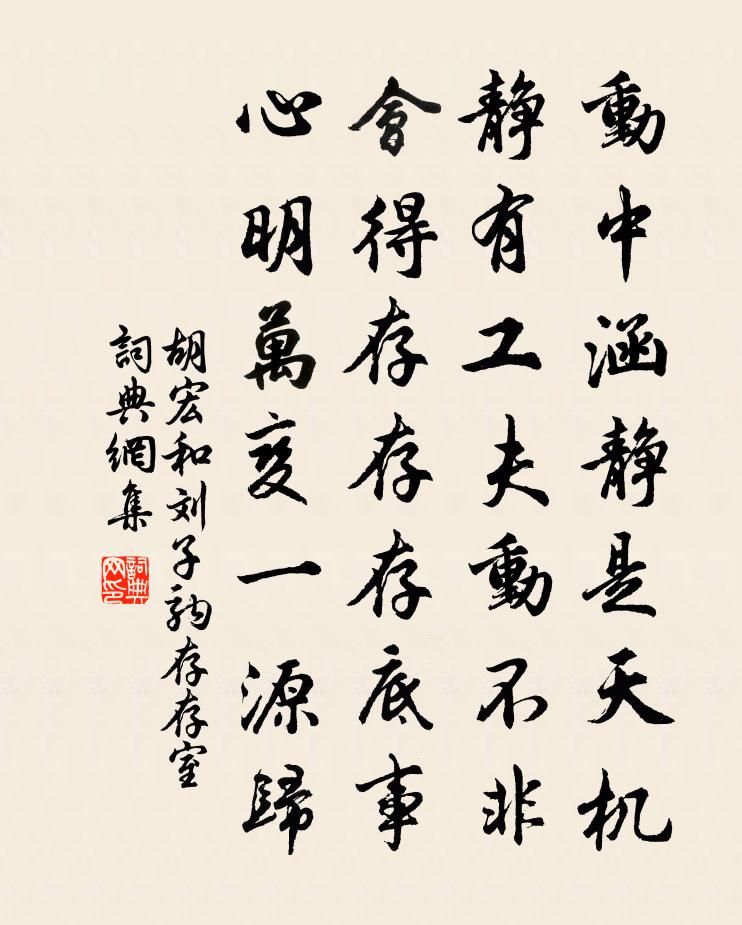 動中涵静是天机
静有工夫動不非
會得存存存底事
心明萬変一源歸
胡宏和刘子駒存存室
詞典網集
詞典网印